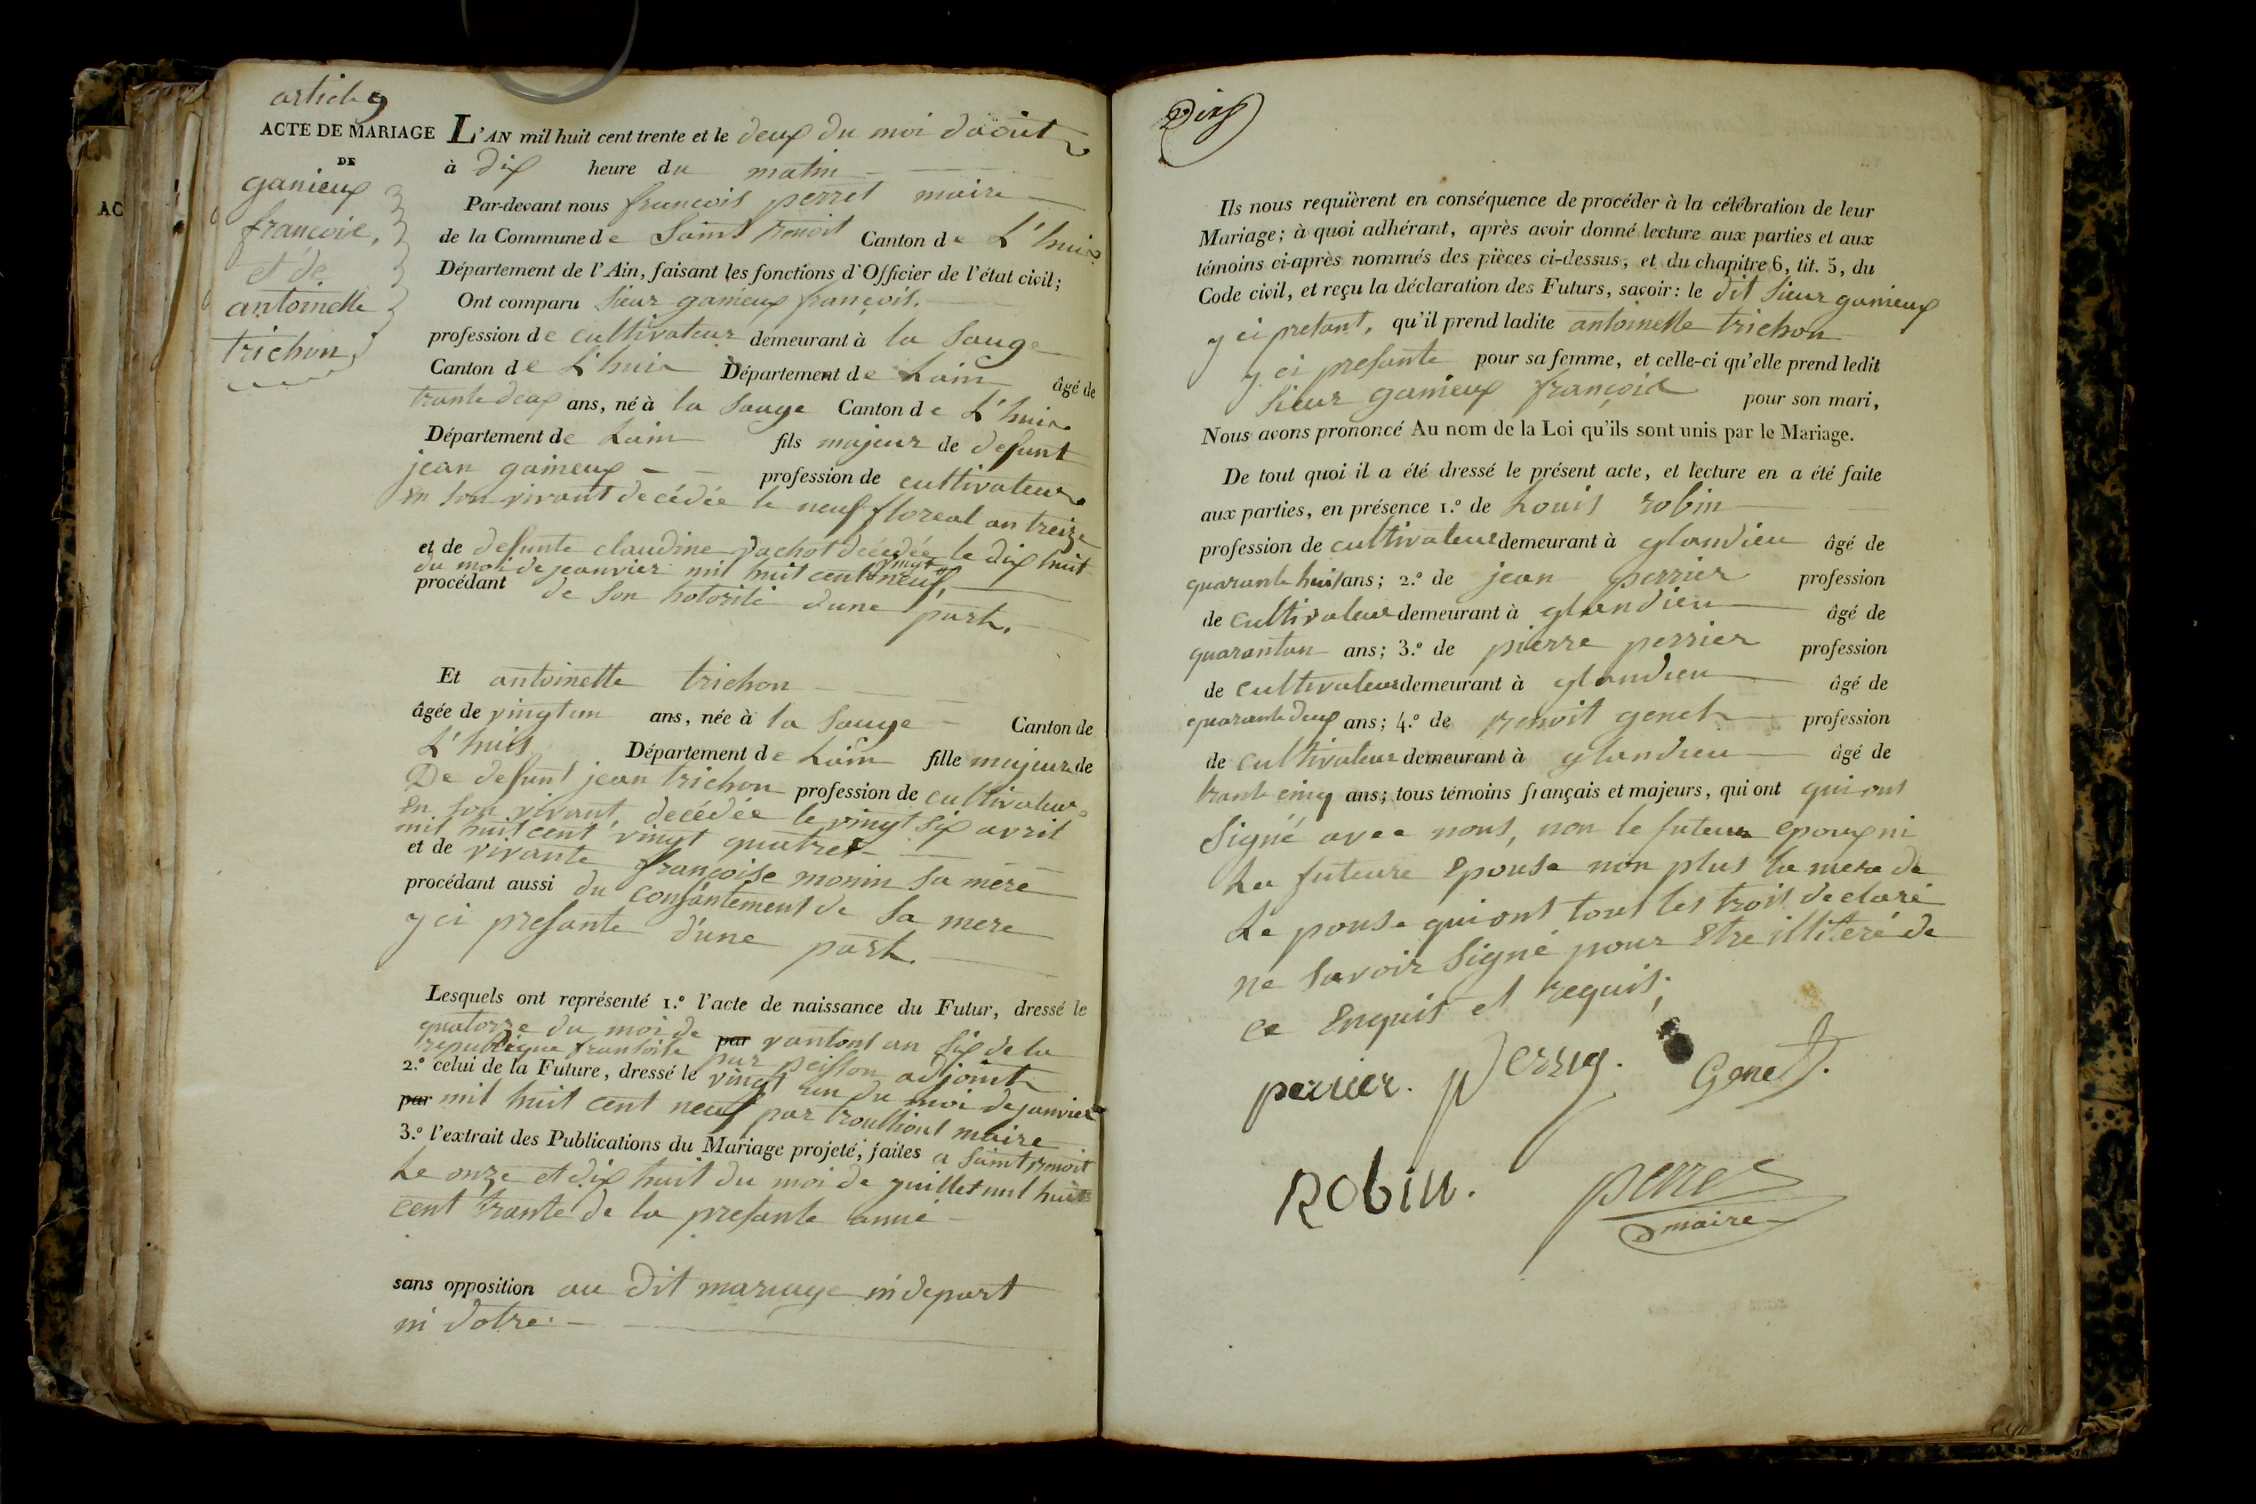 article 9
ACTE DE MARIAGE
DE
ganieux
francoix,
et de
antoinette
trichon
L'AN mil huit cent trente et le deux du moi daout
à dix heure du matin
Par-devant nous francois perret maire
de la Commune de Saint benoit Canton de L'huix
Département de l'Ain, faisant les fonctions d'Officier de l'état civil;
Ont comparu Sieur ganieux françois.
profession de cultivateur demeurant à la Sauge
Canton de L'huix Département de Lain âgé de
trante deux ans, né à la Sauge Canton de L'huix
Département de Lain fils majeur de defunt
jean ganieux profession de cultivateur
en son vivant decédée le neuf floreal an treize
et de defunte claudine pachot décédée le dix huit
du moi de jeanvier mil huit cent vingt neuf,
procédant de Son hotorité dune part.
Et antoinette trichon
âgée de vingt un ans, née à la Sauge Canton de
L'huis Département de Lain fille majeur de
De defunt jean trichon profession de cultivateur
en son vivant, decédée le vingt six avril
mil huit cent vingt quatre
et de vivante françoise monin sa mere
procédant aussi du consantement de Sa mere
y ci presante d'une part.
Lesquels ont représenté 1.º l'acte de naissance du Futur, dressé le
quatorze du moi de par vantons an six de la
republique fransoise par peisson adjoint
2.º celui de la Future, dressé le vingt un du moi de janvier
par mil huit cent neuf par trouilliout maire
3.º l'extrait des Publications du Mariage projeté, faites a Saint benoit
Le onze et dix huit du moi de juillet mil huit
cent trante de la presante anné
sans opposition au Dit mariage ni depart
ni Dotre.
Dix
Ils nous requièrent en conséquence de procéder à la célébration de leur
Mariage; à quoi adhérant, après avoir donné lecture aux parties et aux
témoins ci-après nommés des pièces ci-dessus, et du chapitre 6, tit. 5, du
Code civil, et reçu la déclaration des Futurs, savoir: le dit Sieur ganieux
y ci pretant, qu'il prend ladite antoinette trichon
y ci presante pour sa femme, et celle-ci qu'elle prend ledit
Sieur ganieux françoix pour son mari,
Nous avons prononcé Au nom de la Loi qu'ils sont unis par le Mariage.
De tout quoi il a été dressé le présent acte, et lecture en a été faite
aux parties, en présence 1.º de Louis robin
profession de cultivateur demeurant à glandieu âgé de
quarante huit ans; 2.º de jean perrier profession
de cultivateur demeurant à glandieu âgé de
quarantun ans; 3.º de pierre perrier profession
de cultivateur demeurant à glandieu âgé de
quarante deux ans; 4.º de benoit genet profession
de cultivateur demeurant à glandieu âgé de
trante cinq ans; tous témoins français et majeurs, qui ont qui ont
Signé avec nous, non le futeur epoux ni
La futeure Epouse non plus la mere de
Le pouse qui ont tous les trois declaré
ne savoir Signé pour Etre illiteré de
ce Enquis et requis;
perrier. perrier. Genet.
Robin. perret
maire